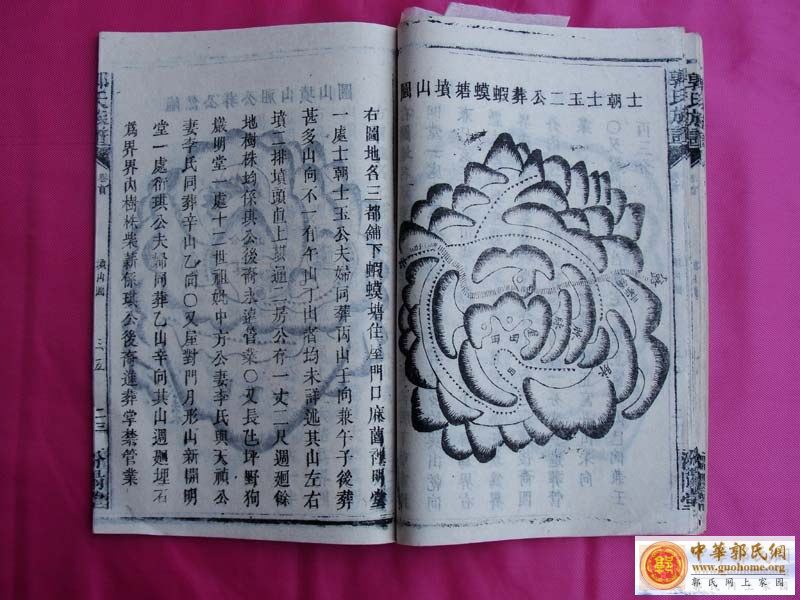 士朝士玉二公葬蝦蟆塘墳山圖
郭氏族譜
汾陽堂
右圖地名三都舖下蝦蟆塘住屋門口麻園裡明堂
一處士朝士玉公夫婦同葬丙山壬向兼午子後葬
甚多山向不一有午山丁山者均未詳述其山左右
墳二排墳頭直上
通二房公存一丈二尺週廻餘
地樹株均係琪公後裔永遠管業〇又長
坪野狗
巖明堂一處十二世祖妣中方公妻李氏與天禎公
妻李氏同葬辛山乙向〇又屋對門月形山新開明
堂一處
琪公夫婦同葬乙山辛向其山週廻埋石
為界界內樹株柴薪係琪公後裔進葬掌禁管業
郭氏族譜
卷首
墳山圖
三五
二三
汾陽堂
中華郭氏網
www.guohome.org
郭氏网上家园